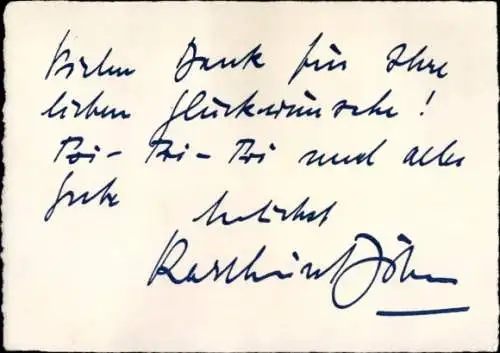 Vielen Dank für Ihre
lieben Glückwünsche!
Toi - Toi - Toi und alles
Gute
herzlichst
Karlheinz Böhm